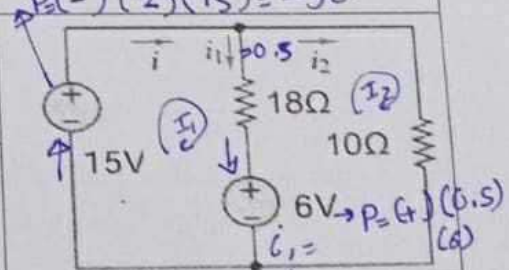 P=(-)(2)(15)=-30
i i₁ 0.5 i₂
18Ω I₂
I₁ 10Ω
15V
6V → P=(+)(0.5)
(6)
i₁ =